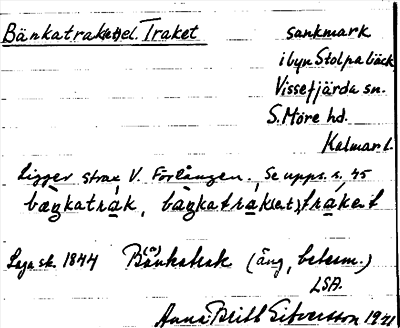 Bänkatraket el. Traket
sankmark
i byn Stolpabäck
Vissefjärda sn.
S. Möre hd.
Kalmar l.
Ligger strax V. Förlången. Se upps. s. 45
bäŋkatràk, bàŋkatràk(et), tràket
Laga sk. 1844 Bä(a)nkatrak (äng, betesm.)
LSA.
Anna-Britt Sitversson 1941